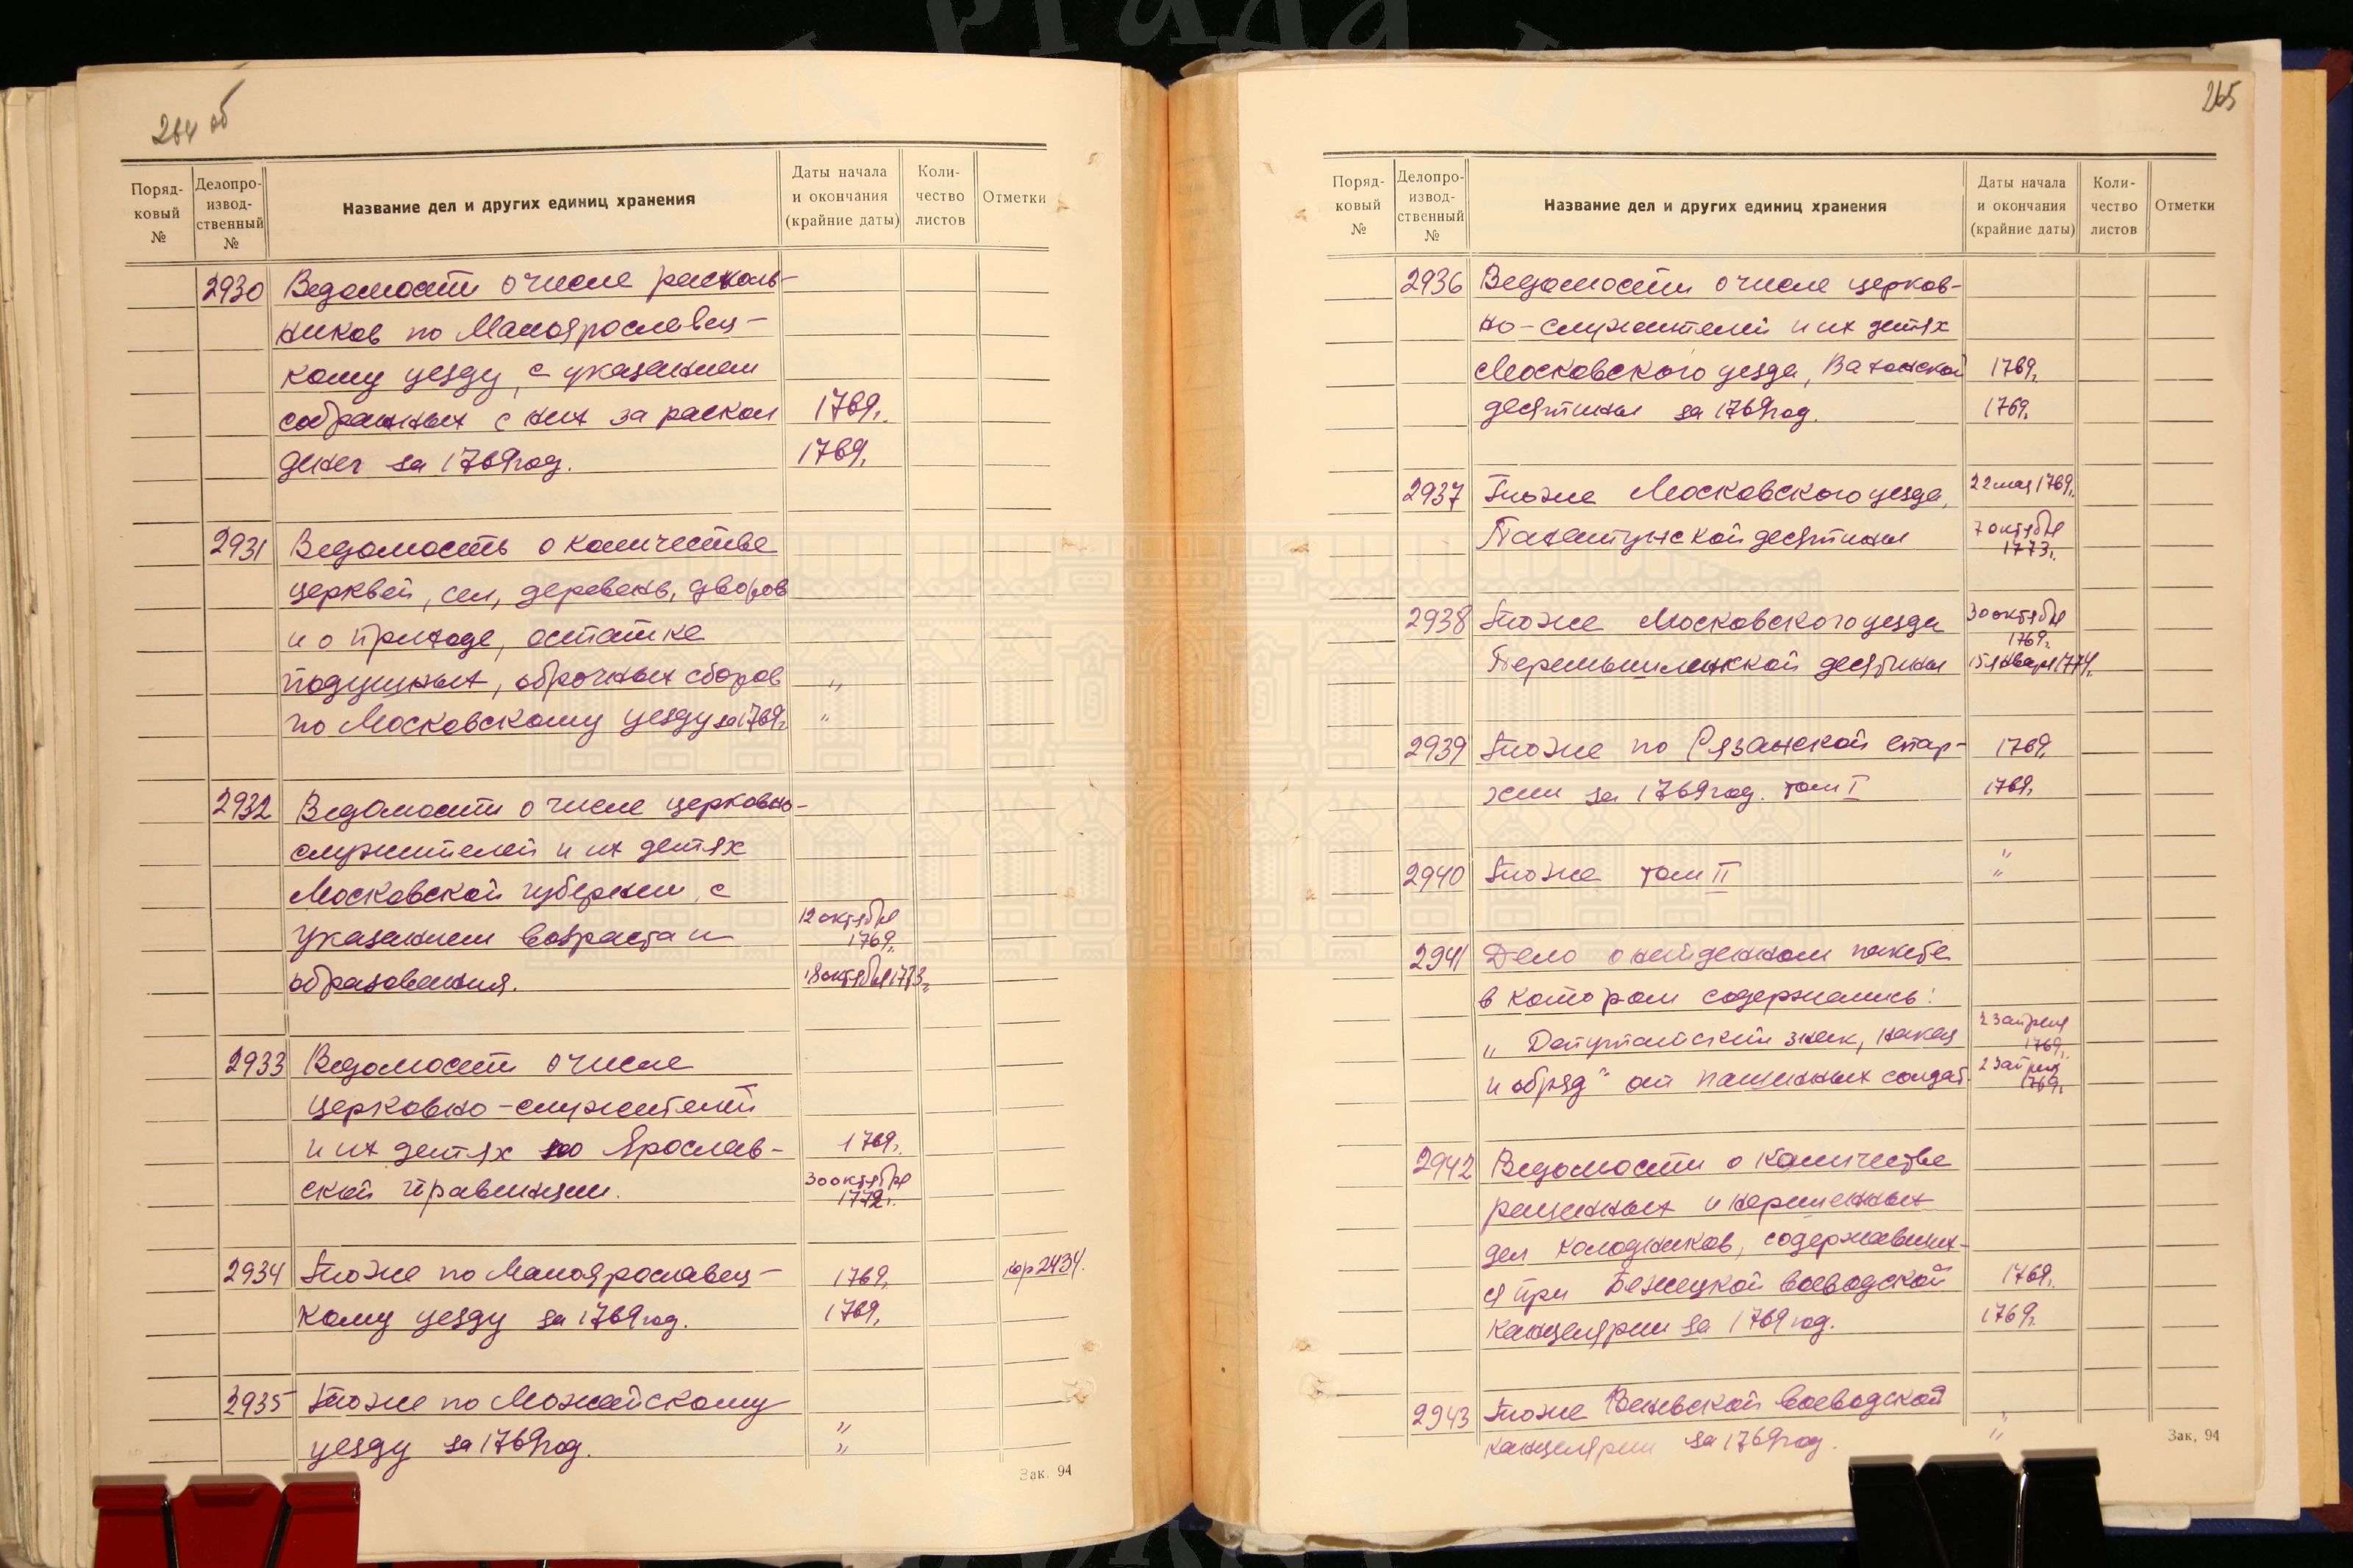 264 об
Поряд-
ковый
№
Делопро-
извод-
ственный
№
Название дел и других единиц хранения
Даты начала
и окончания
(крайние даты)
Коли-
чество
листов
Отметки
2930 Ведомости о числе расколь-
ников по Малоярославец-
кому уезду, с указанием
собранных с них за раскол 1769г.
денег за 1769 год. 1769г.
2931 Ведомость о количестве
церквей, сел, деревень, дворов
и о приходе, остатке
подушных, оброчных сборов "
по Московскому уезду за 1769г. "
2932 Ведомости о числе церковно-
служителей и их детях
Московской губернии, с
указанием возраста и 12 октября 1769г.
образования. 18 октября 1773г.
2933 Ведомости о числе
церковно-служителей
и их детях по Ярослав- 1769г.
ской провинции. 30 октября 1772г.
2934 То же по Малоярославец- 1769г. кор 2434.
кому уезду за 1769 год. 1769г.
2935 То же по Можайскому "
уезду за 1769 год. "
Зак. 94
265
Поряд-
ковый
№
Делопро-
извод-
ственный
№
Название дел и других единиц хранения
Даты начала
и окончания
(крайние даты)
Коли-
чество
листов
Отметки
2936 Ведомости о числе церков-
но-служителей и их детях
Московского уезда, Вахонской 1769г.
десятины за 1769 год. 1769г.
2937 То же Московского уезда, 22 мая 1769г.
Пахитунской десятины 7 октября 1773г.
2938 То же Московского уезда 30 октября 1769г.
Перемышленской десятины 15 января 1774г.
2939 То же по Рязанской епар- 1769г.
хии за 1769 год. том I 1769г.
"
2940 То же том II "
2941 Дело о найденном пакете
в котором содержались:
„ Депутатский знак, наказ 23 апреля 1769г.
и обряд" от пашенных солдат. 23 апреля 1769г.
2942 Ведомости о количестве
решенных и нерешенных
дел колодников, содержавших-
ся при Бежецкой воеводской 1769г.
канцелярии за 1769 год. 1769г.
2943 То же Веневской воеводской "
канцелярии за 1769 год. "
Зак. 94